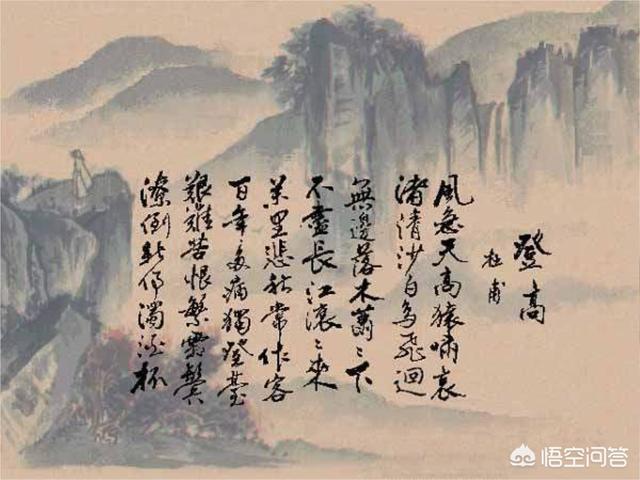 登高
杜甫
風急天高猿嘯哀
渚清沙白鳥飛迴
無邊落木蕭〻下
不盡長江滾〻來
萬里悲秋常作客
百年多病獨登臺
艱難苦恨繁霜鬢
潦倒新停濁酒杯
悟空问答